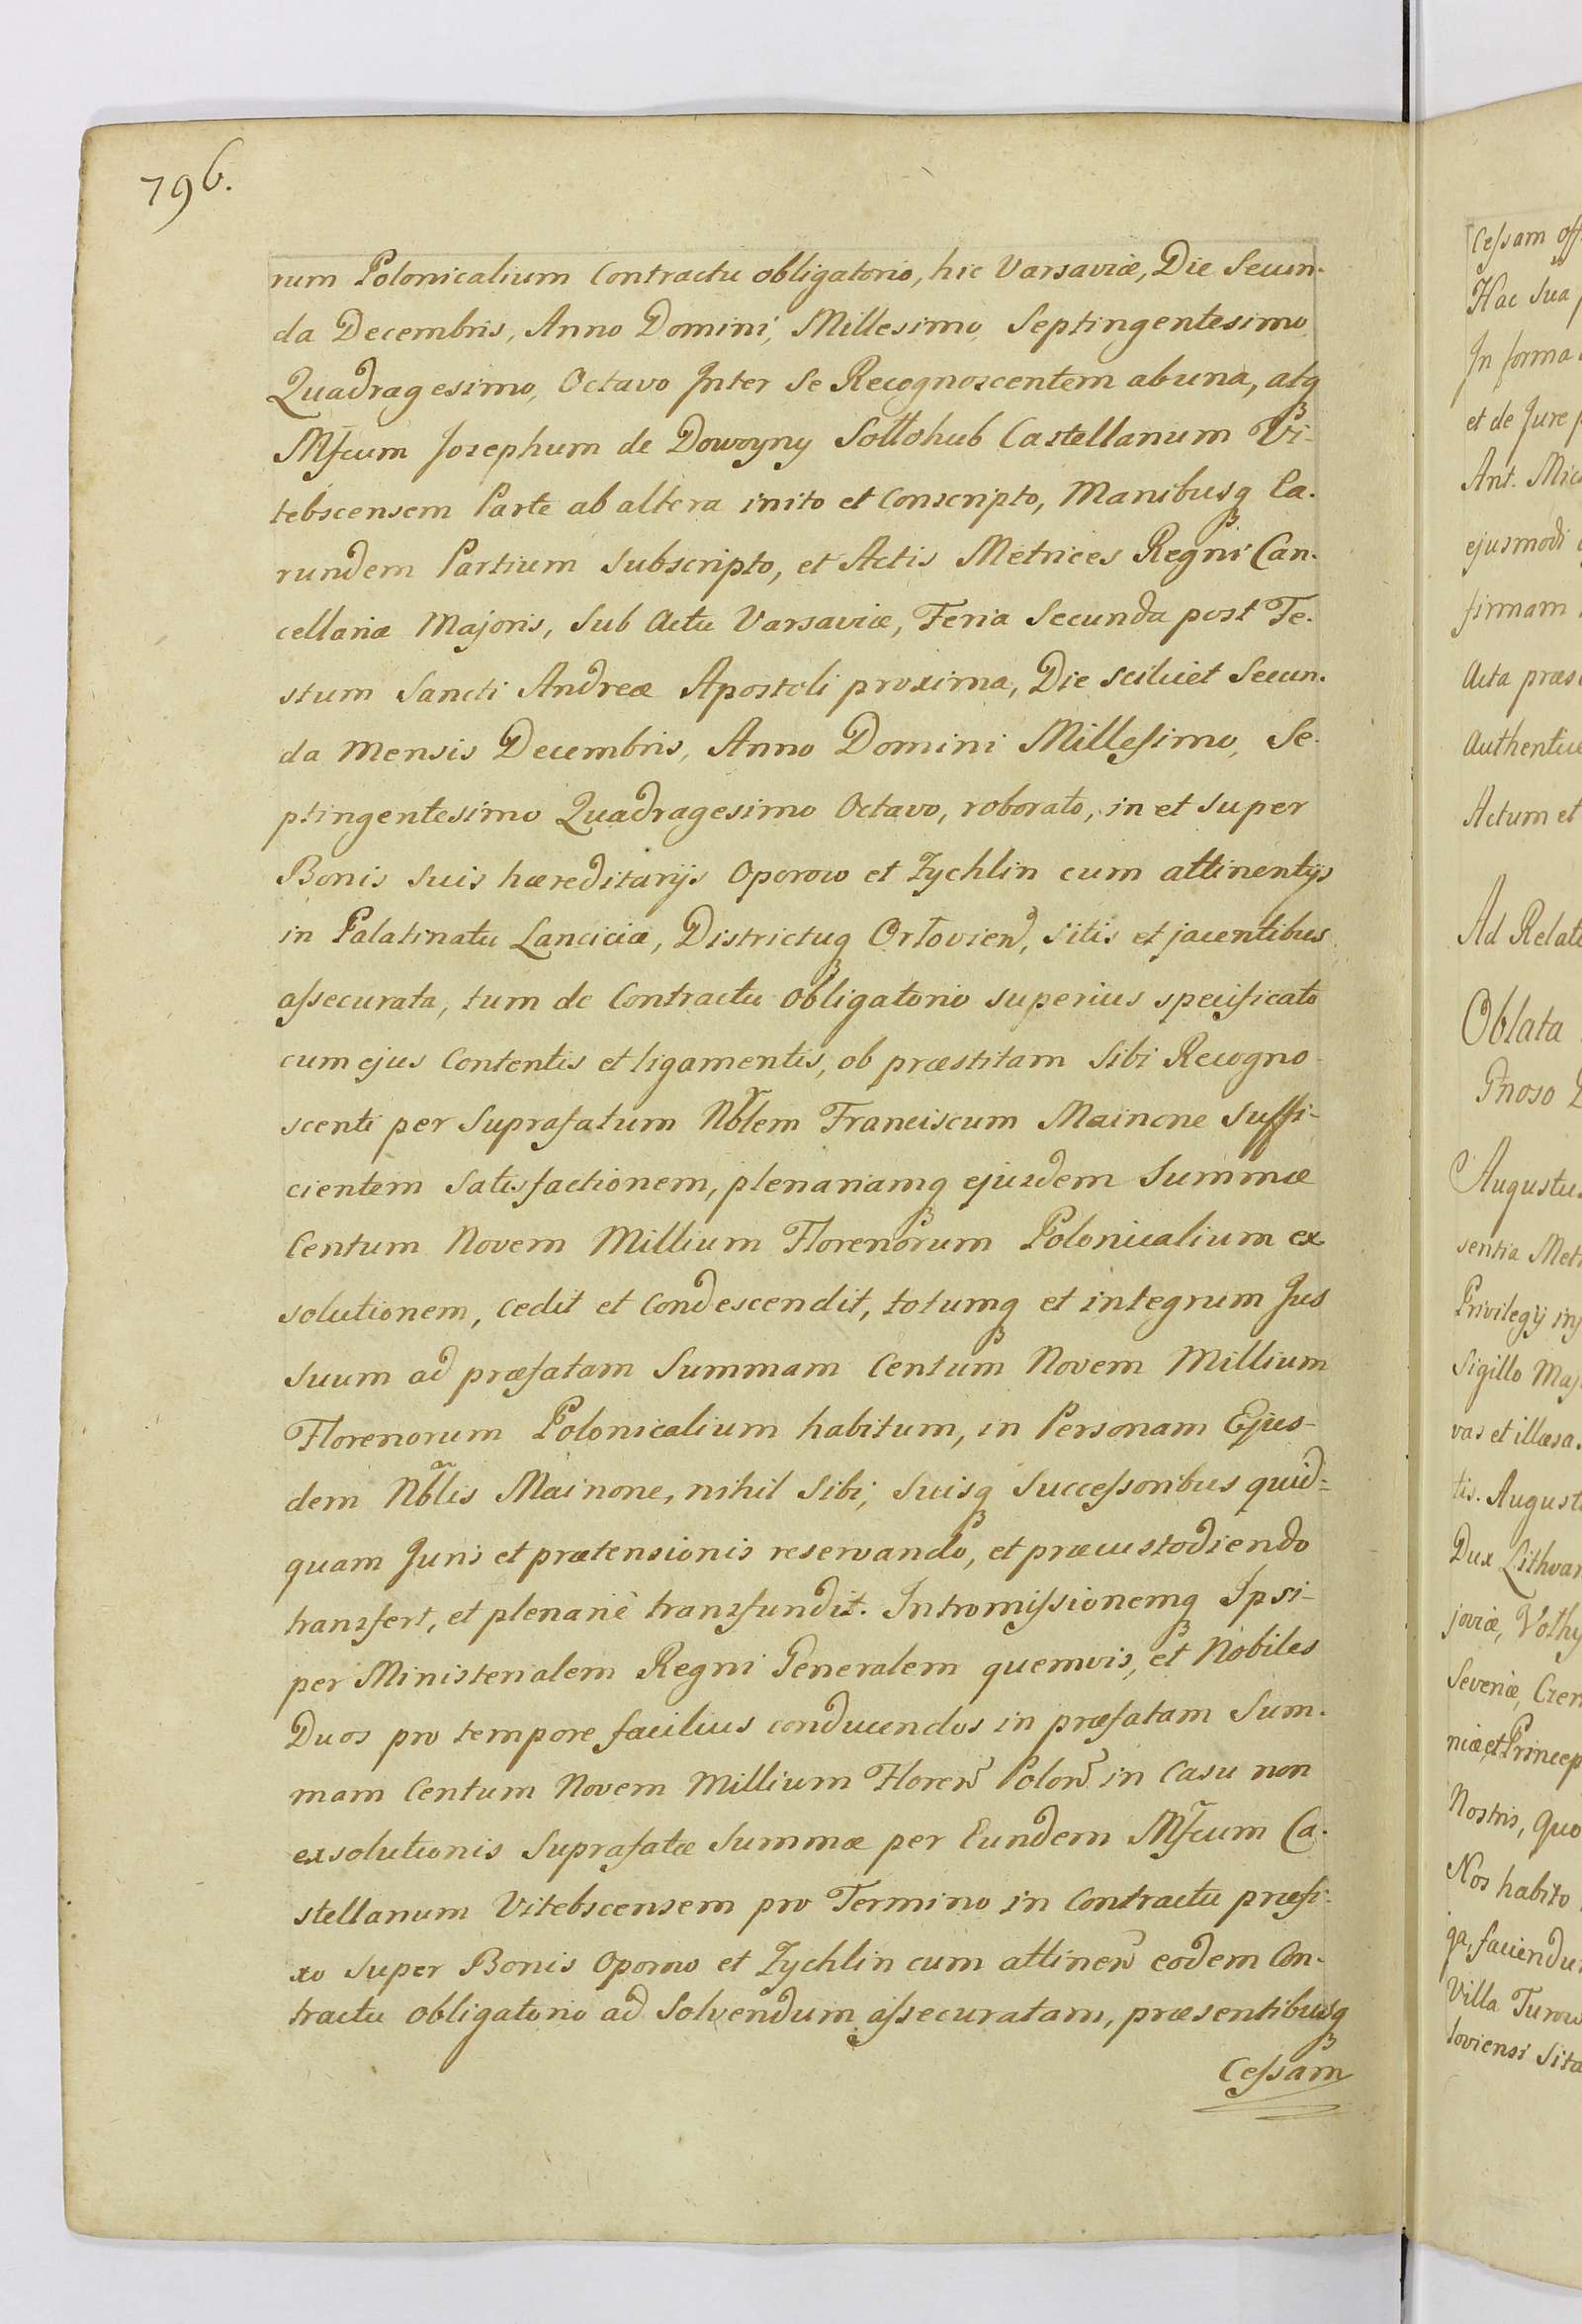 796.
rum Polonicalium Contractu obligatorio, hic Varsaviæ, Die Secun-
da Decembris, Anno Domini, Millesimo, Septingentesimo
Quadragesimo, Octavo Inter Se Recognoscentem ab una, atq₃
Mf̃cum Josephum de Dowoyny Sollohub Castellanum Vi-
tebscensem Parte ab altera inito et Conscripto, Manibusq₃ Ea-
rundem Partium Subscripto, et Actis Metrices Regni Can-
cellariæ Majoris, Sub Actu Varsaviæ, Feria Secunda post Fe-
stum Sancti Andreæ Apostoli proxima, Die scilicet Secun-
da Mensis Decembris, Anno Domini Milleſimo, Se-
ptingentesimo Quadragesimo Octavo, roborato, in et super
Bonis Suis hæreditarijs Oporow et Zychlin cum attinentijs
in Palatinatu Lanciciæ, Districtuq₃ Orlovien̄, sitis et jacentibus
aſsecurata, tum de Contractu Obligatorio superius specificato
cum ejus Contentis et ligamentis, ob præstitam Sibi Recogno-
scenti per Suprafatum Nb̃lem Franciscum Mainone Suffi-
cientem Satisfactionem, plenariamq₃ ejusdem Summæ
Centum Novem Millium Florenorum Polonicalium ex
solutionem, cedit et Condescendit, totumq₃ et integrum Jus
Suum ad præfatam Summam Centum Novem Millium
Florenorum Polonicalium habitum, in Personam Ejus-
dem Nb̃lis Mainone, nihil Sibi, Suisq₃ Succeſsoribus quid-
quam Juris et prætensionis reservando, et præcustodiendo
transfert, et plenariè transfundit. Intromiſsionemq₃ Ipsi-
per Ministerialem Regni Generalem quemvis, et Nobiles
Duos pro tempore facilius conducendos in præfatam Sum-
mam Centum Novem Millium Floren̄ Polon̄ in Casu non
exsolutionis Suprafatæ Summæ per Eundem Mf̃cum Ca-
stellanum Vitebscensem pro Termino in Contractu præfi-
xo super Bonis Oporow et Zychlin cum attinen̄ eodem Con-
tractu Obligatorio ad Solvendum aſsecuratam, præsentibusq₃
Ceſsam
Ceſsam off
Hac Sua
In forma
et de Jure
Ant. Mic
ejusmodi
firmam
Acta præs
Authentic
Actum et
Ad Relati
Oblata
Gnoso
Augustus
sentia Met
Privilegij in
Sigillo Maj
vas et illæsa
tis. August
Dux Lithvan
joviæ, Volhy
Severiæ, Czer
niæ, et Princep
Nostris, Quo
Nos habito
ga, faciendu
Villa Turow
loviensi Sita